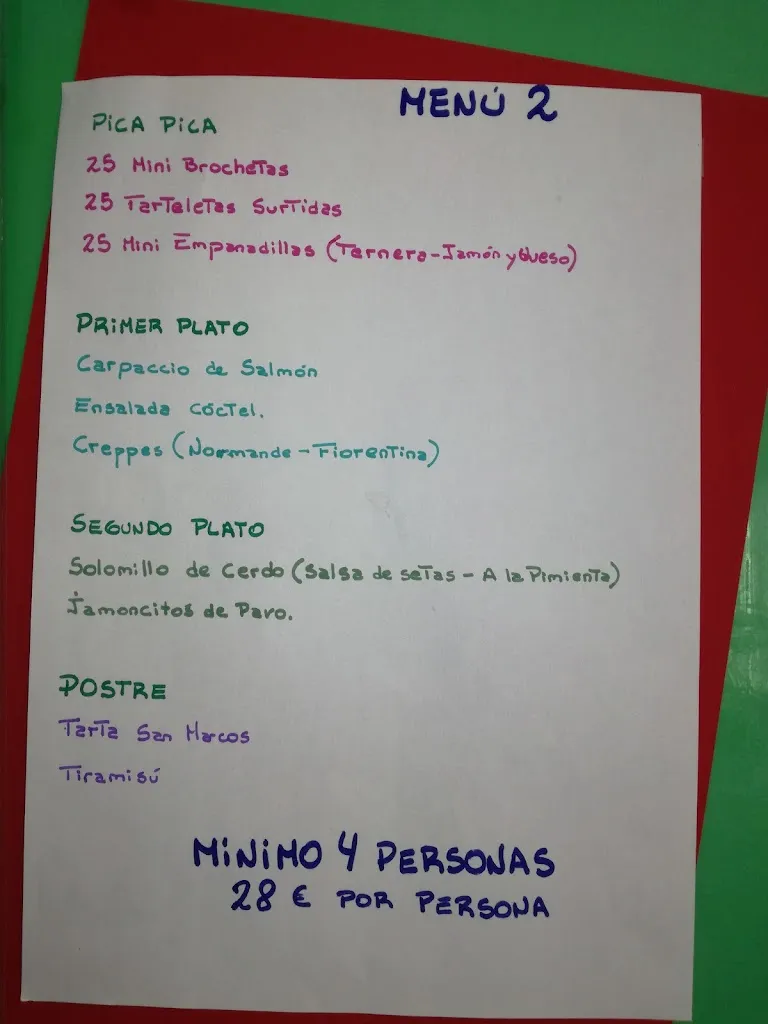 MENÚ 2
PICA PICA
25 Mini Brochetas
25 Tarteletas Surtidas
25 Mini Empanadillas (Ternera-Jamón y Queso)
PRIMER PLATO
Carpaccio de Salmón
Ensalada cóctel.
Creppes (Normande - Fiorentina)
SEGUNDO PLATO
Solomillo de cerdo (Salsa de setas - A la Pimienta)
Jamoncitos de Pavo.
POSTRE
Tarta San Marcos
Tiramisú
MINIMO 4 PERSONAS
28 € POR PERSONA